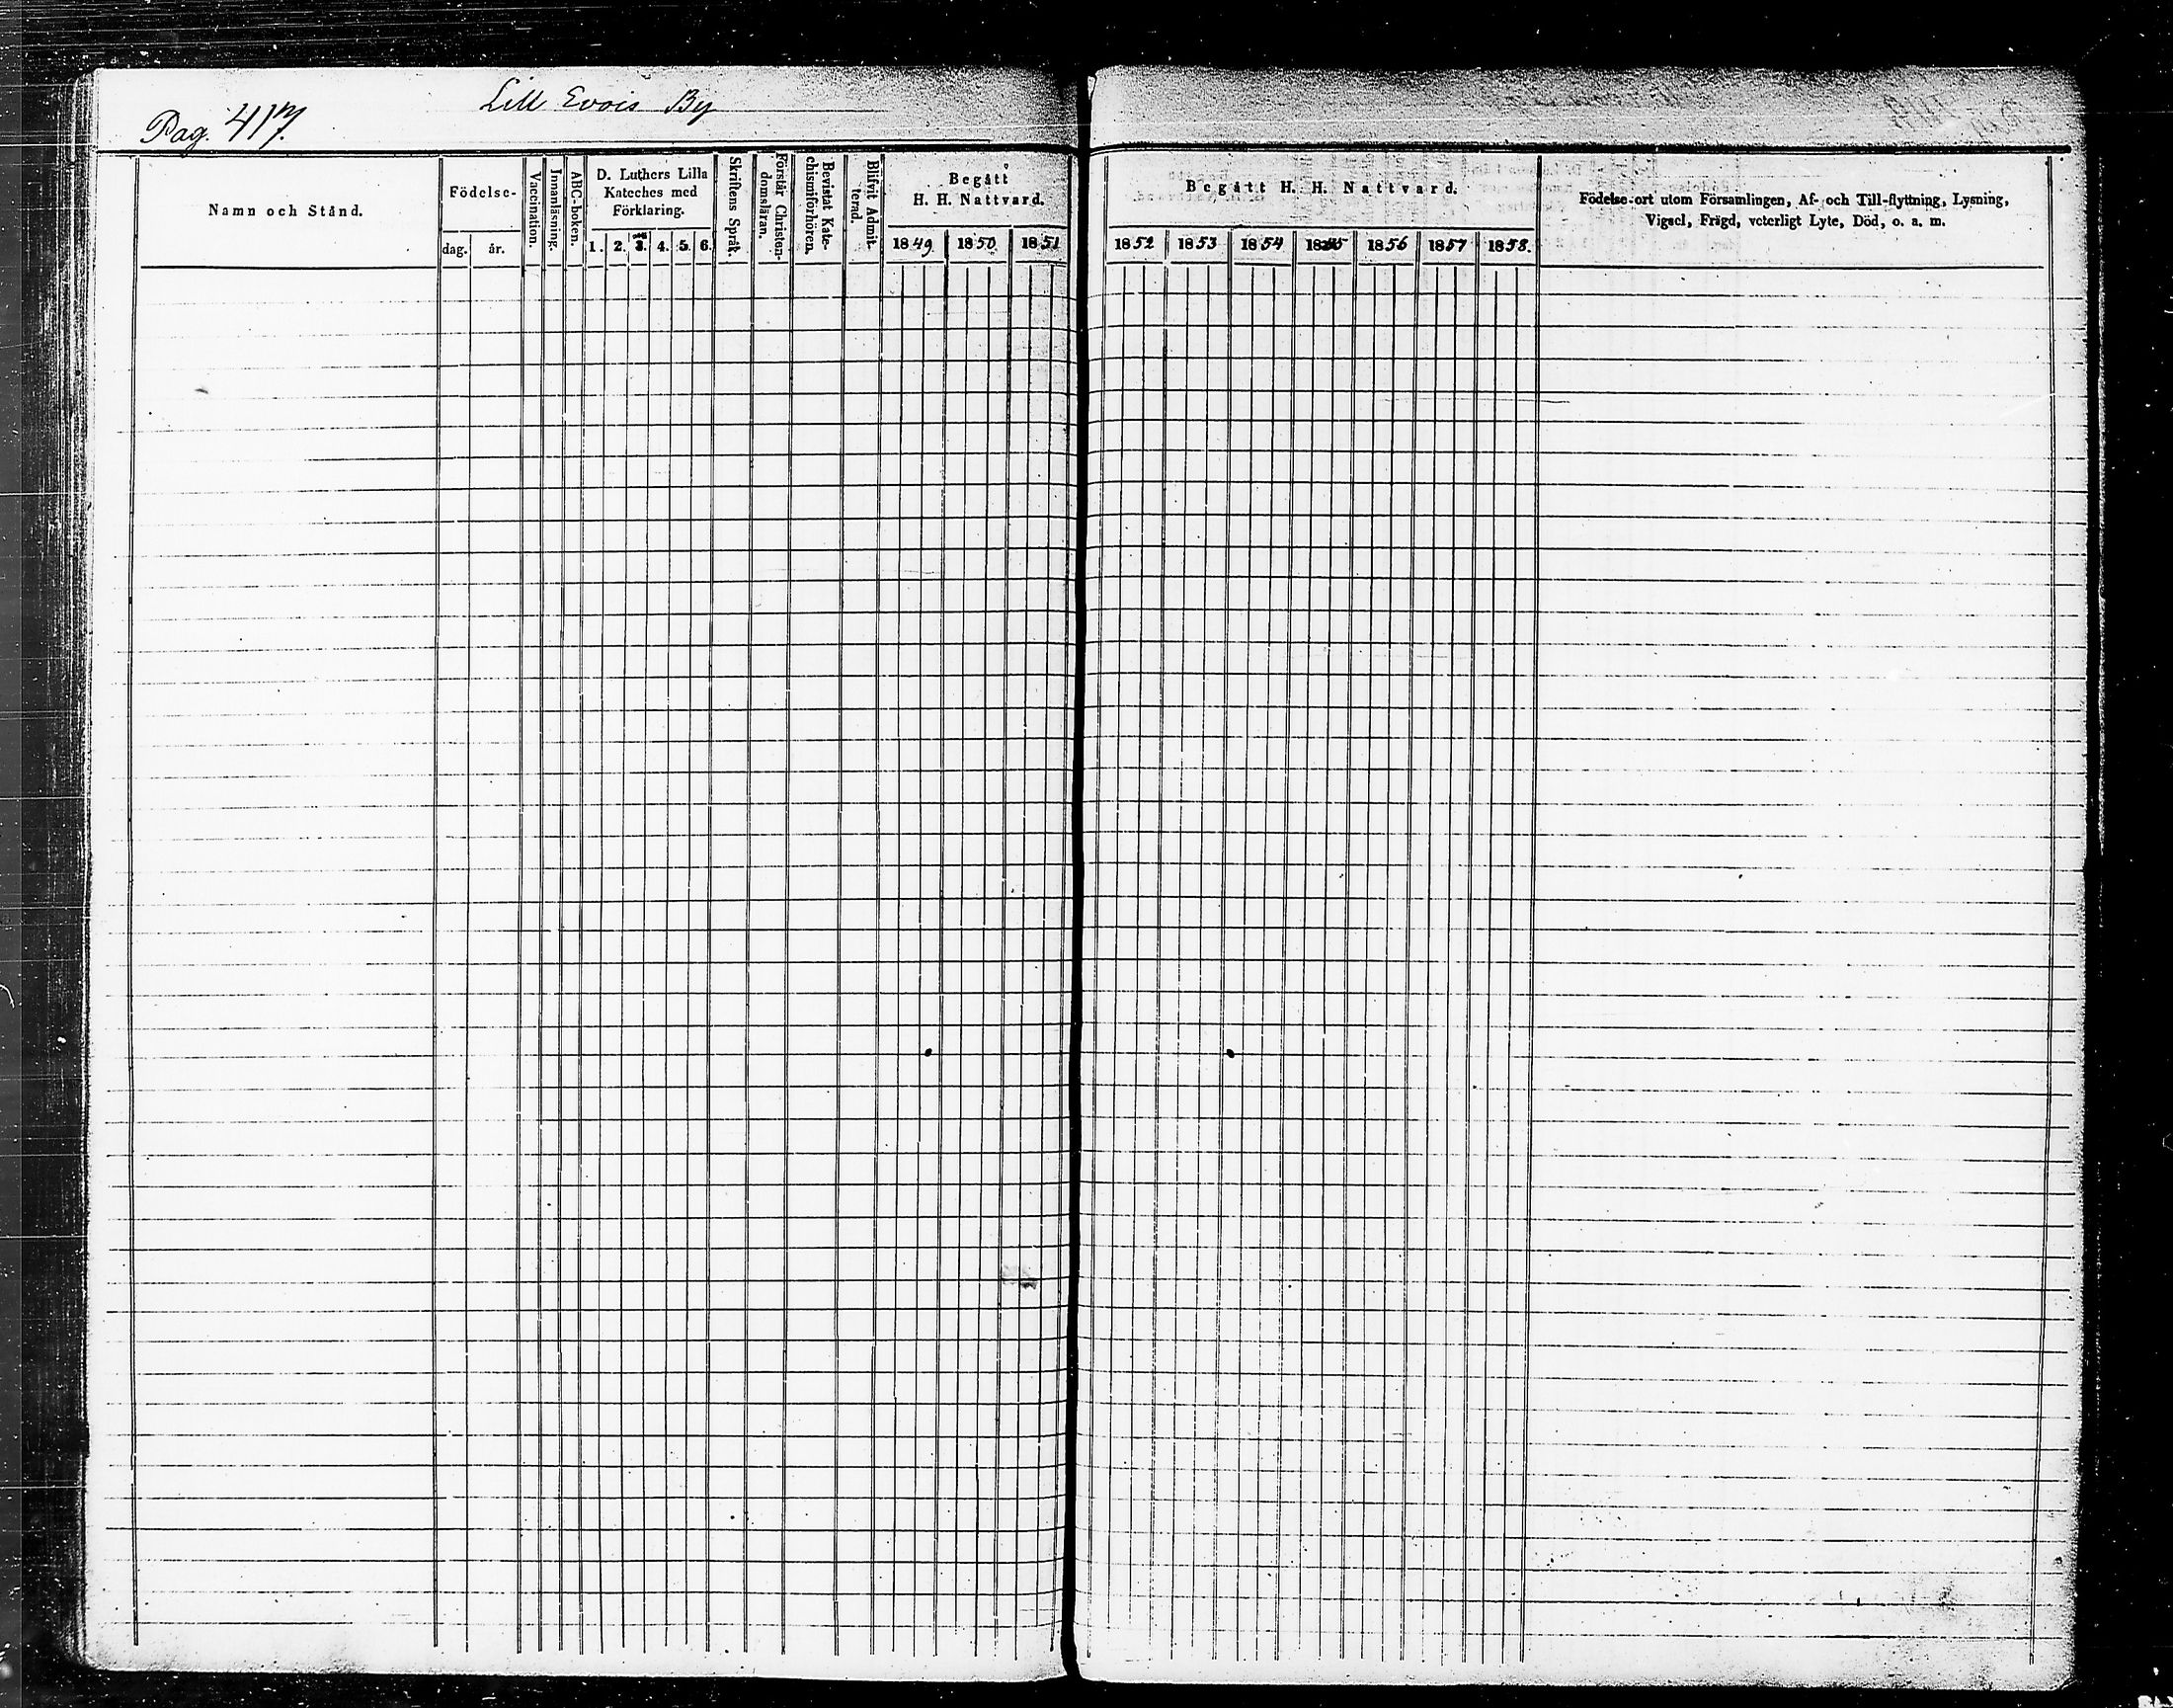 Pag. 417.
Lill Evois By
Namn och Stånd.
Födelse-
dag.
år.
Vaccination.
Innanläsning.
ABC-boken.
D. Luthers Lilla
Kateches med
Förklaring.
1. 2. 3. 4. 5. 6.
Skriftens Språk.
Förstår Christen-
domsläran.
Bevistat Kate-
chismiförhören.
Blifvit Admit-
terad.
Begått
H. H. Nattvard.
1849 1850 1851
Begått H. H. Nattvard.
1852 1853 1854 1855 1856 1857 1858.
Födelse-ort utom Församlingen, Af- och Till-flyttning, Lysning,
Vigsel, Frägd, veterligt Lyte, Död, o. a. m.